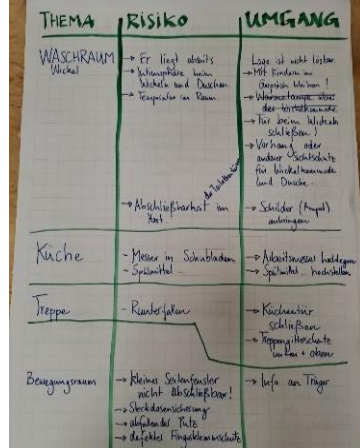 THEMA RISIKO UMGANG
WASCHRAUM
Wickel
→ Er liegt abseits
→ Intimsphäre beim
Wickeln und Duschen
→ Temperatur im Raum
→ Abschließbarkeit
der Toilettentüren
Lage ist nicht lösbar
→ Mit Kindern im
Gespräch bleiben!
→ Tür beim Wickeln
schließen!
→ Vorhang oder
anderer Sichtschutz
für Wickelkommode
und Dusche
→ Schilder (Ampel)
anbringen
Küche
- Messer in Schubladen
- Spülmittel
→ Arbeitsmesser
→ Spülmittel hochstellen
Treppe
- Runterfallen
→ Küchentür
schließen
→ Treppengitterschutz
unten + oben
Bewegungsraum
→ kleines Seitenfenster
nicht abschließbar!
→ Steckdosensicherung
→ abfallender Putz
→ defekter Fingerklemmschutz
→ Info an Träger